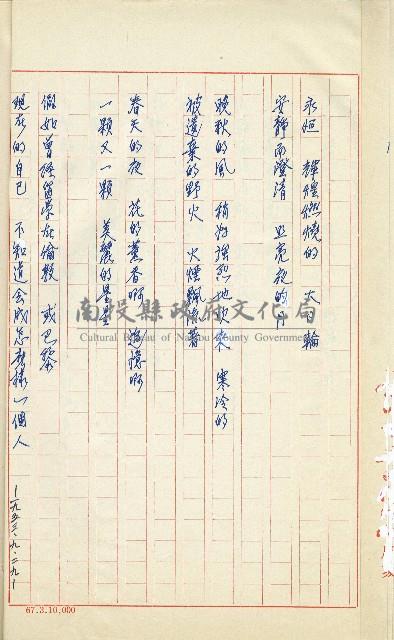 永恒 輝煌燃燒的 太日輪
安靜而澄清 照亮夜的
晚秋的風 稍為強烈地吹來 寒冷的
被遺棄的野火 火煙飄著
春天的夜 花的薰香啊 追憶啊
一顆又一顆 美麗的星星
假如曾經留學在倫敦 或巴黎
現在的自己 不知道會成怎麼樣一個人
—一九五三.九.二九—
南投縣政府文化局
Cultural Bureau of Nantou County Government
67.3.10,000